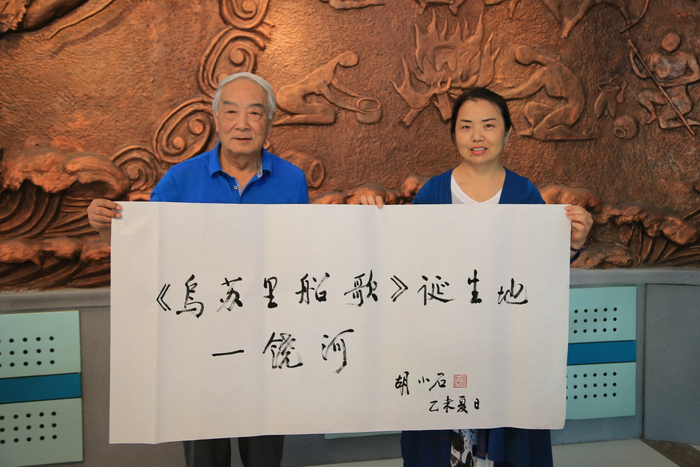 《乌苏里船歌》诞生地
一饶河
胡小石
乙未夏日